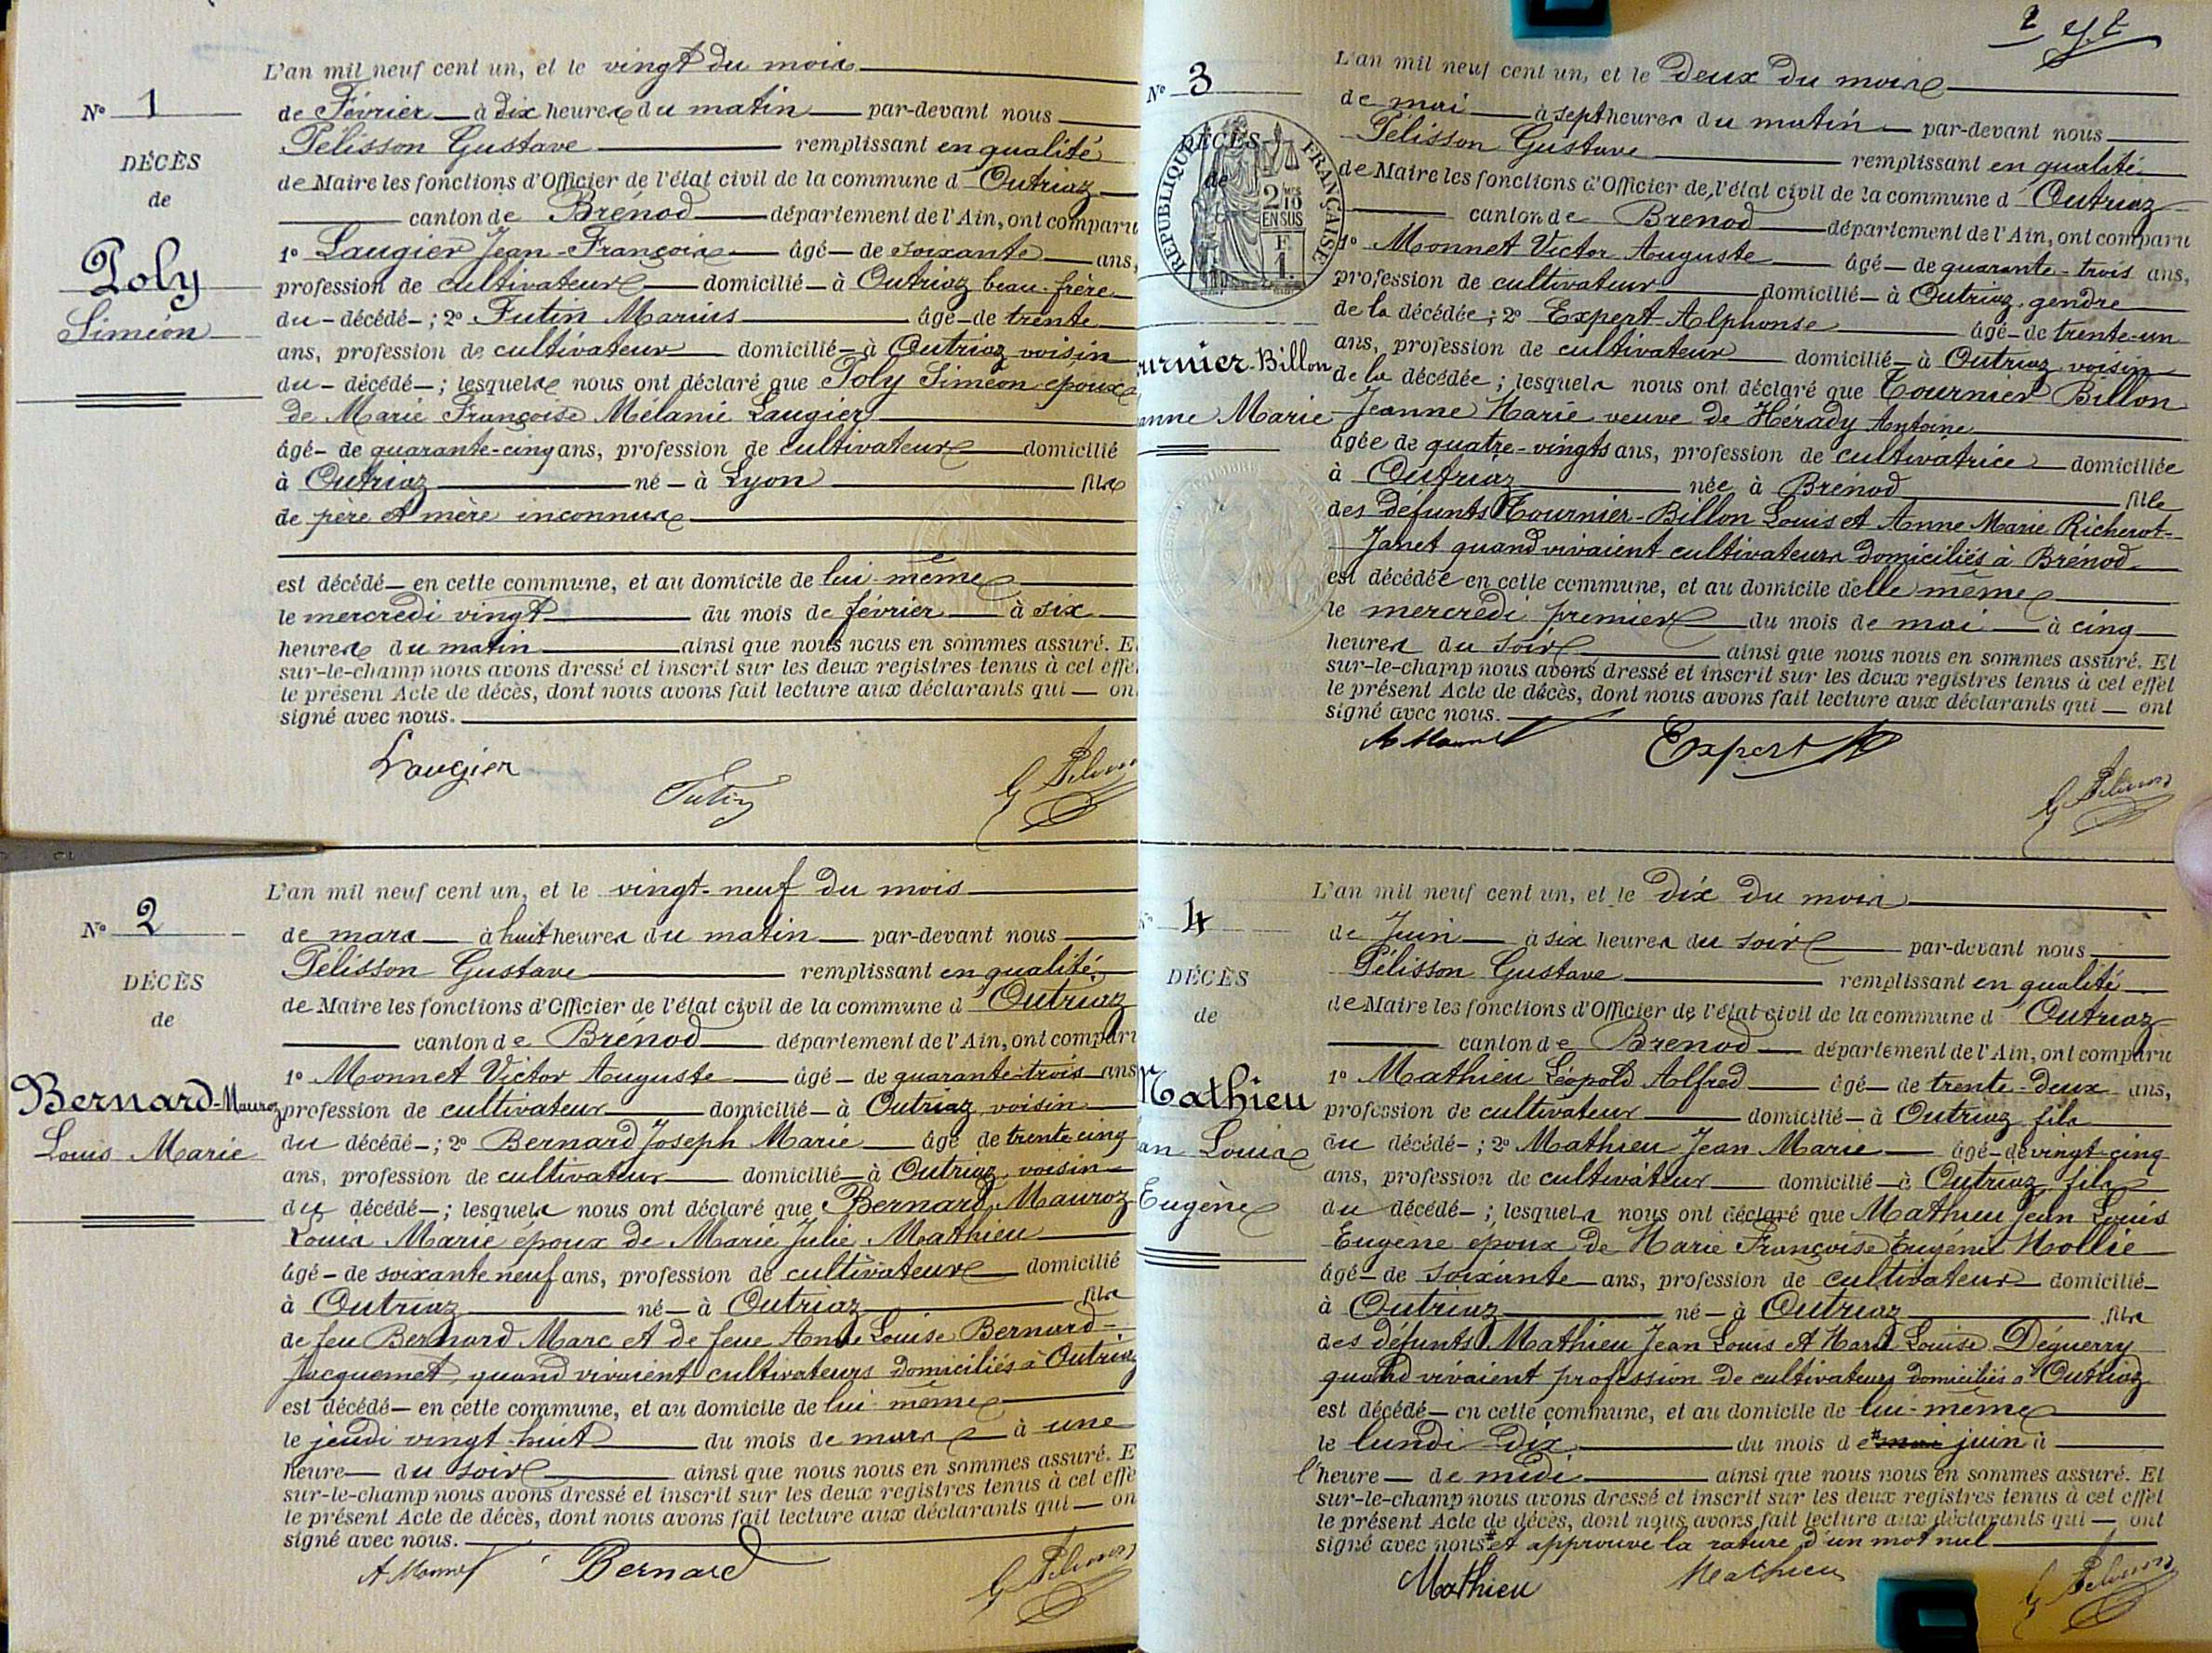 L'an mil neuf cent un, et le vingt du mois
N° 1
de Février à dix heures du matin par-devant nous
DÉCÈS
Pélisson Gustave remplissant en qualité
de
de Maire les fonctions d'Officier de l'état civil de la commune d'Outriaz
canton de Brénod département de l'Ain, ont comparu
Poly
1° Laugier Jean-François âgé de soixante ans,
profession de cultivateur domicilié à Outriaz beau-frère
Siméon
du décédé; 2° Futin Marius âgé de trente
ans, profession de cultivateur domicilié à Outriaz voisin
du décédé; lesquels nous ont déclaré que Poly Siméon époux
de Marie Françoise Mélanie Laugier
âgé de quarante-cinq ans, profession de cultivateur domicilié
à Outriaz né à Lyon fils
de père et mère inconnus
est décédé en cette commune, et au domicile de lui-même
le mercredi vingt du mois de février à six
heures du matin ainsi que nous nous en sommes assuré. E
sur-le-champ nous avons dressé et inscrit sur les deux registres tenus à cet effe
le présent Acte de décès, dont nous avons fait lecture aux déclarants qui on
signé avec nous.
Laugier
Futin
G Pelisson
L'an mil neuf cent un, et le vingt-neuf du mois
N° 2
de mars à huit heures du matin par-devant nous
DÉCÈS
Pélisson Gustave remplissant en qualité
de
de Maire les fonctions d'Officier de l'état civil de la commune d'Outriaz
canton de Brénod département de l'Ain, ont comparu
1° Monnet Victor Auguste âgé de quarante-trois ans
Bernard-Mauroz
profession de cultivateur domicilié à Outriaz voisin
Louis Marie
du décédé; 2° Bernard Joseph Marie âgé de trente cinq
ans, profession de cultivateur domicilié à Outriaz voisin
du décédé; lesquels nous ont déclaré que Bernard, Mauroz
Louis Marie époux de Marie Julie Mathieu
âgé de soixante neuf ans, profession de cultivateur domicilié
à Outriaz né à Outriaz fils
de feu Bernard Marc et de feue Anne Louise Bernard-
Jacquemet, quand vivaient cultivateurs domiciliés à Outriaz
est décédé en cette commune, et au domicile de lui-même
le jeudi vingt-huit du mois de mars à une
heure du soir ainsi que nous nous en sommes assuré. E
sur-le-champ nous avons dressé et inscrit sur les deux registres tenus à cet effe
le présent Acte de décès, dont nous avons fait lecture aux déclarants qui on
signé avec nous.
A Monnet
Bernard
G Pelisson
L'an mil neuf cent un, et le Deux du mois
N° 3
de mai à sept heures du matin par-devant nous
DÉCÈS
Pélisson Gustave remplissant en qualité
de
RÉPUBLIQUE FRANÇAISE
2/10 EN SUS
de Maire les fonctions d'Officier de l'état civil de la commune d'Outriaz
canton de Brenod département de l'Ain, ont comparu
1° Monnet Victor Auguste âgé de quarante-trois ans,
profession de cultivateur domicilié à Outriaz, gendre
de la décédée; 2° Expert Alphonse âgé de trente-un
ans, profession de cultivateur domicilié à Outriaz voisin
urnier-Billon
de la décédée; lesquels nous ont déclaré que Tournier Billon
anne Marie
Jeanne Marie veuve de Hérady Antoine
âgée de quatre-vingts ans, profession de cultivatrice domiciliée
à Outriaz née à Brenod fille
des défunts Tournier-Billon Louis et Anne Marie Richerot-
Janet quand vivaient cultivateurs domiciliés à Brénod
est décédée en cette commune, et au domicile d'elle même
le mercredi premier du mois de mai à cinq
heures du soir ainsi que nous nous en sommes assuré. Et
sur-le-champ nous avons dressé et inscrit sur les deux registres tenus à cet effet
le présent Acte de décès, dont nous avons fait lecture aux déclarants qui ont
signé avec nous.
A Monnet
Expert A
G Pelisson
L'an mil neuf cent un, et le Dix du mois
N° 4
de Juin à six heures du soir par-devant nous
DÉCÈS
Pélisson Gustave remplissant en qualité
de
de Maire les fonctions d'Officier de l'état civil de la commune d'Outriaz
canton de Brenod département de l'Ain, ont comparu
Mathieu
1° Mathieu Léopold Alfred âgé de trente-deux ans,
profession de cultivateur domicilié à Outriaz fils
an Louis
du décédé; 2° Mathieu Jean Marie âgé de vingt-cinq
ans, profession de cultivateur domicilié à Outriaz, fils
Eugène
du décédé; lesquels nous ont déclaré que Mathieu Jean Louis
Eugène époux de Marie Françoise Eugénie Mollie
âgé de soixante ans, profession de cultivateur domicilié
à Outriaz né à Outriaz fils
des défunts Mathieu Jean Louis et Marie Louise Déguerry
quand vivaient profession de cultivateurs domiciliés à Outriaz
est décédé en cette commune, et au domicile de lui-même
le lundi dix du mois de mai juin à
l'heure de midi ainsi que nous nous en sommes assuré. Et
sur-le-champ nous avons dressé et inscrit sur les deux registres tenus à cet effet
le présent Acte de décès, dont nous avons fait lecture aux déclarants qui ont
signé avec nous et approuvé la rature d'un mot nul
Mathieu
Mathieu
G Pelisson